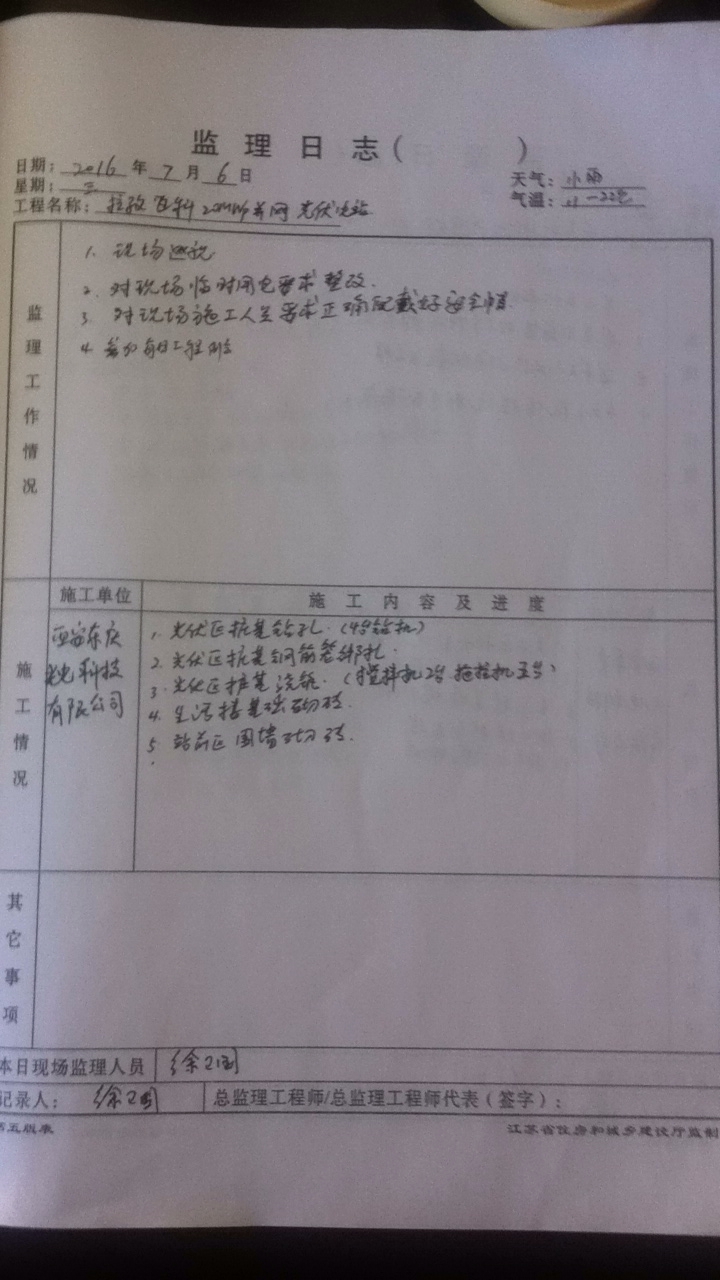 监理日志( )
日期: 2016 年 7 月 6 日
星期: 三
天气: 小雨
工程名称: 拉孜百科20MWp并网光伏电站
气温: 11-22℃
监理工作情况
1. 现场巡视
2. 对现场临时用电要求整改.
3. 对现场施工人员要求正确配戴好安全帽.
4. 参加每日工程例会
施工情况
施工单位
施工内容及进度
西安东庆
光科技
有限公司
1. 光伏区桩基钻孔. (4台钻机)
2. 光伏区桩基钢筋笼绑扎.
3. 光伏区桩基浇筑. (搅拌机2台, 拖拉机5台)
4. 生活楼基础砌砖.
5. 站前区围墙砌砖.
其它事项
本日现场监理人员 徐卫国
记录人: 徐卫国
总监理工程师/总监理工程师代表(签字):
第五版表
江苏省住房和城乡建设厅监制